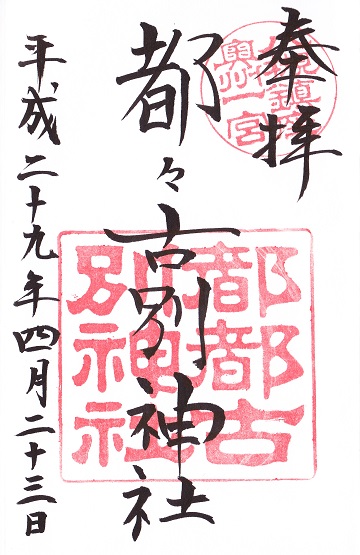 奉拝
都々古別神社
平成二十九年四月二十三日
奥州一宮
都都古別神社